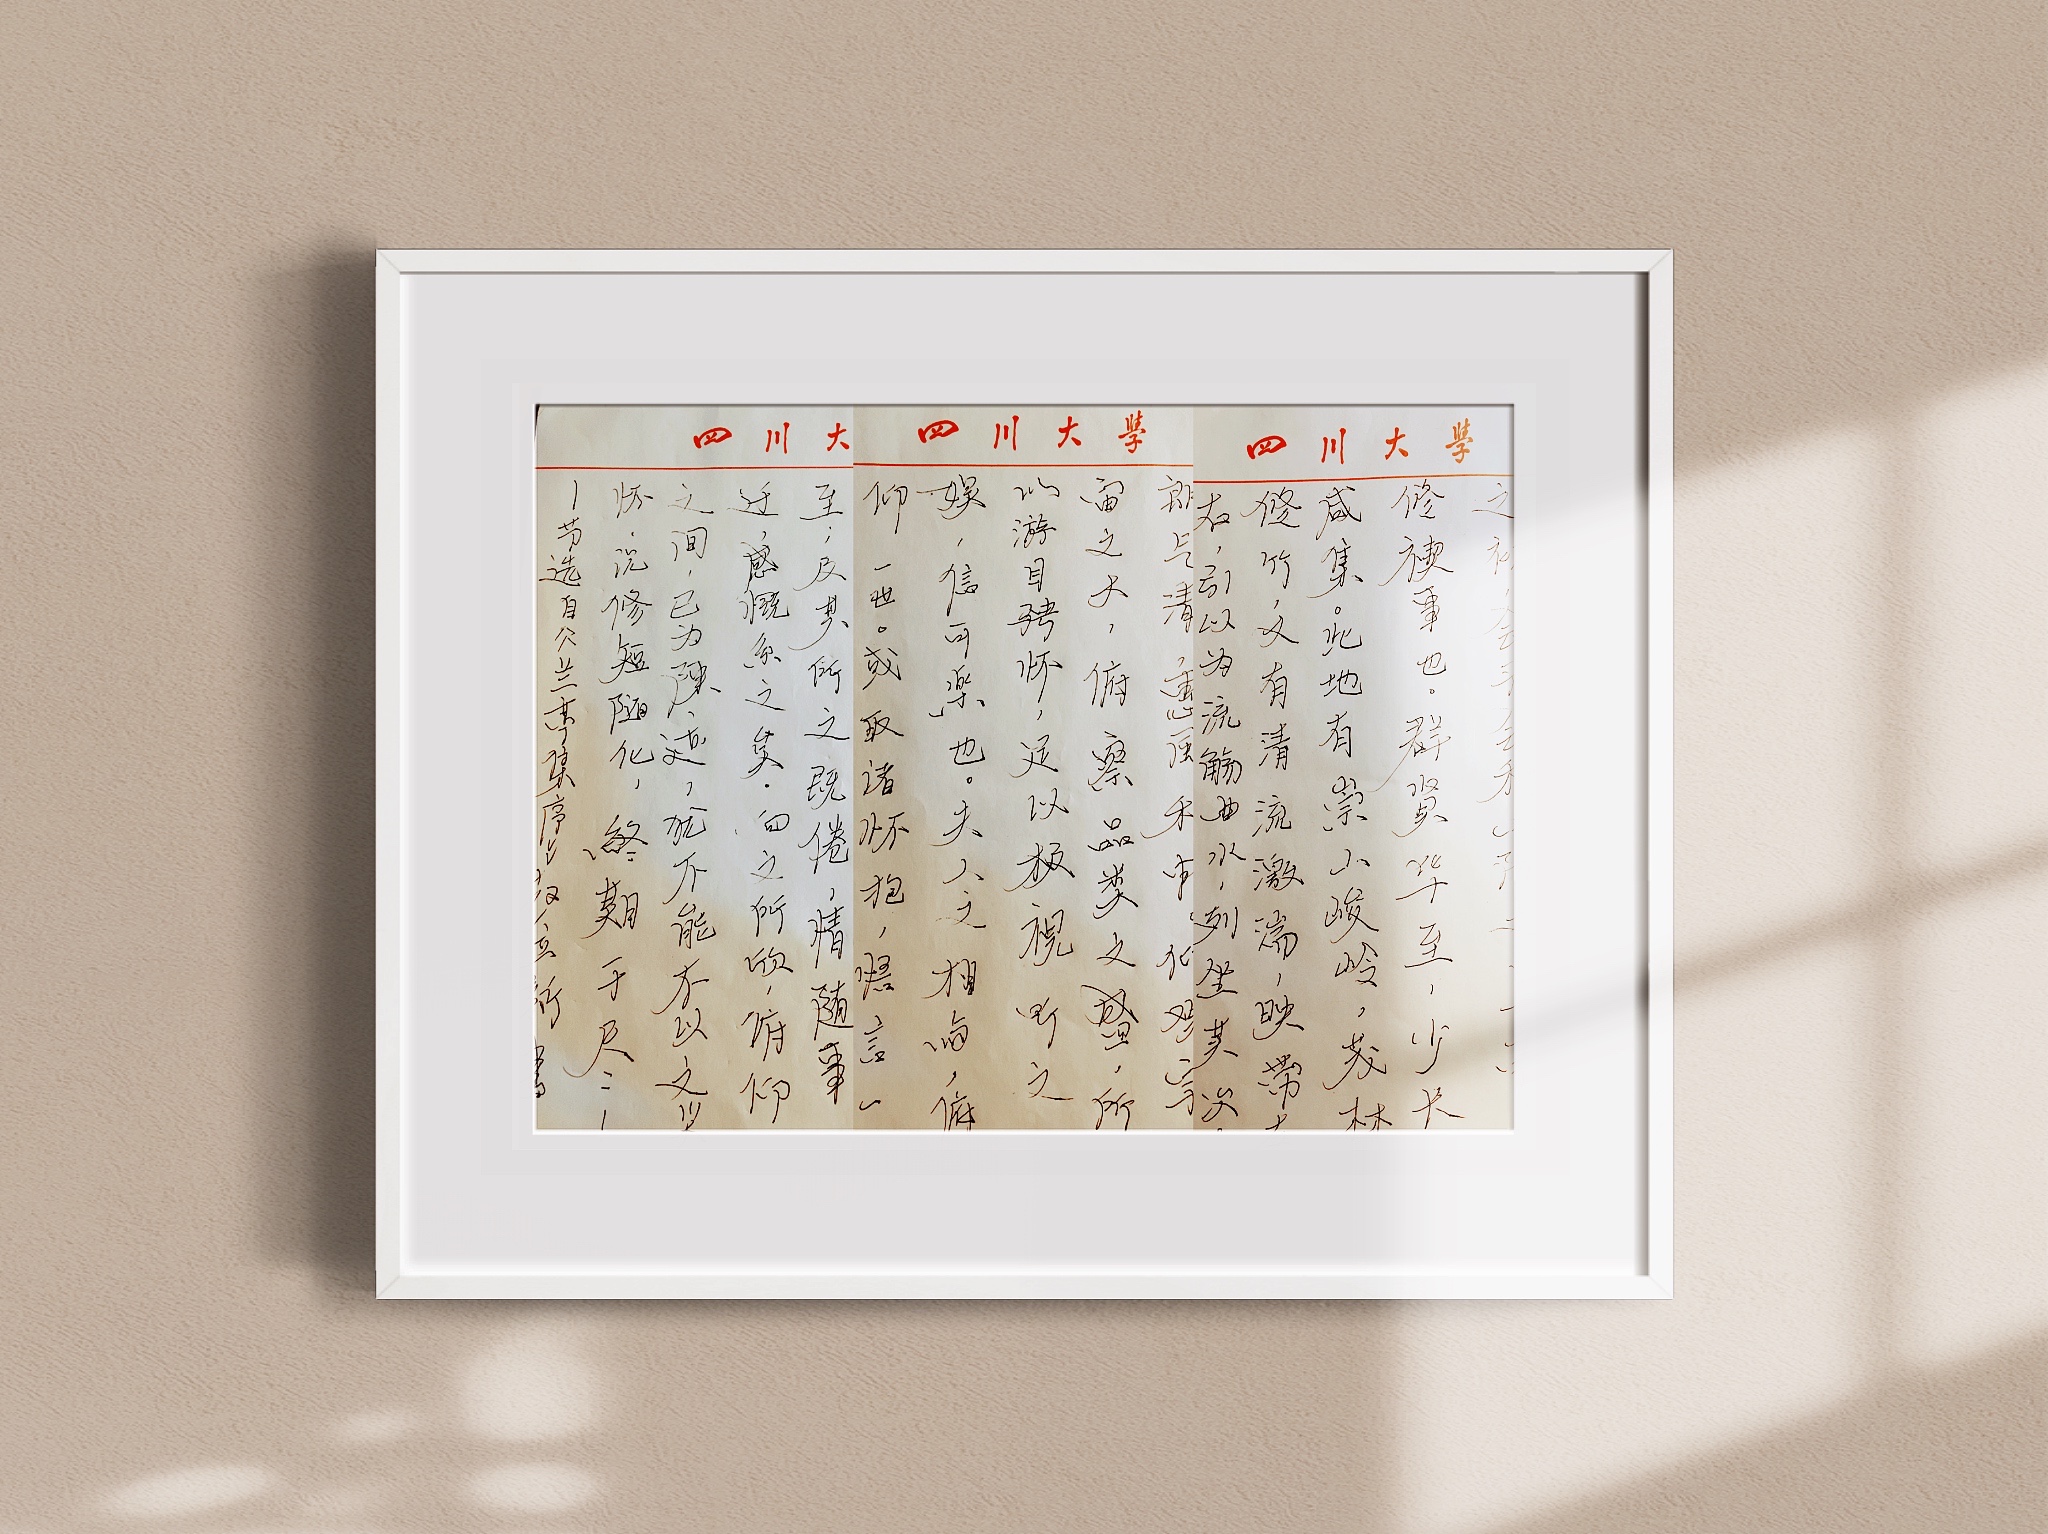 四川大學
修禊事也。群贤毕至，少长
咸集。此地有崇山峻岭，茂林
修竹，又有清流激湍，映带
右，引以为流觞曲水，列坐其次
四川大學
朗气清，惠风和
宙之大，俯察品类之盛，所
以游目骋怀，足以极视听之
娱，信可樂也。夫人之相与，俯
仰一世。或取诸怀抱，悟言一
四川大
至；及其所之既倦，情随事
迁，感慨系之矣。向之所欣，俯仰
之间，已为陳迹，犹不能不以之
怀，况修短随化，終期于尽
节选自《兰亭集序》